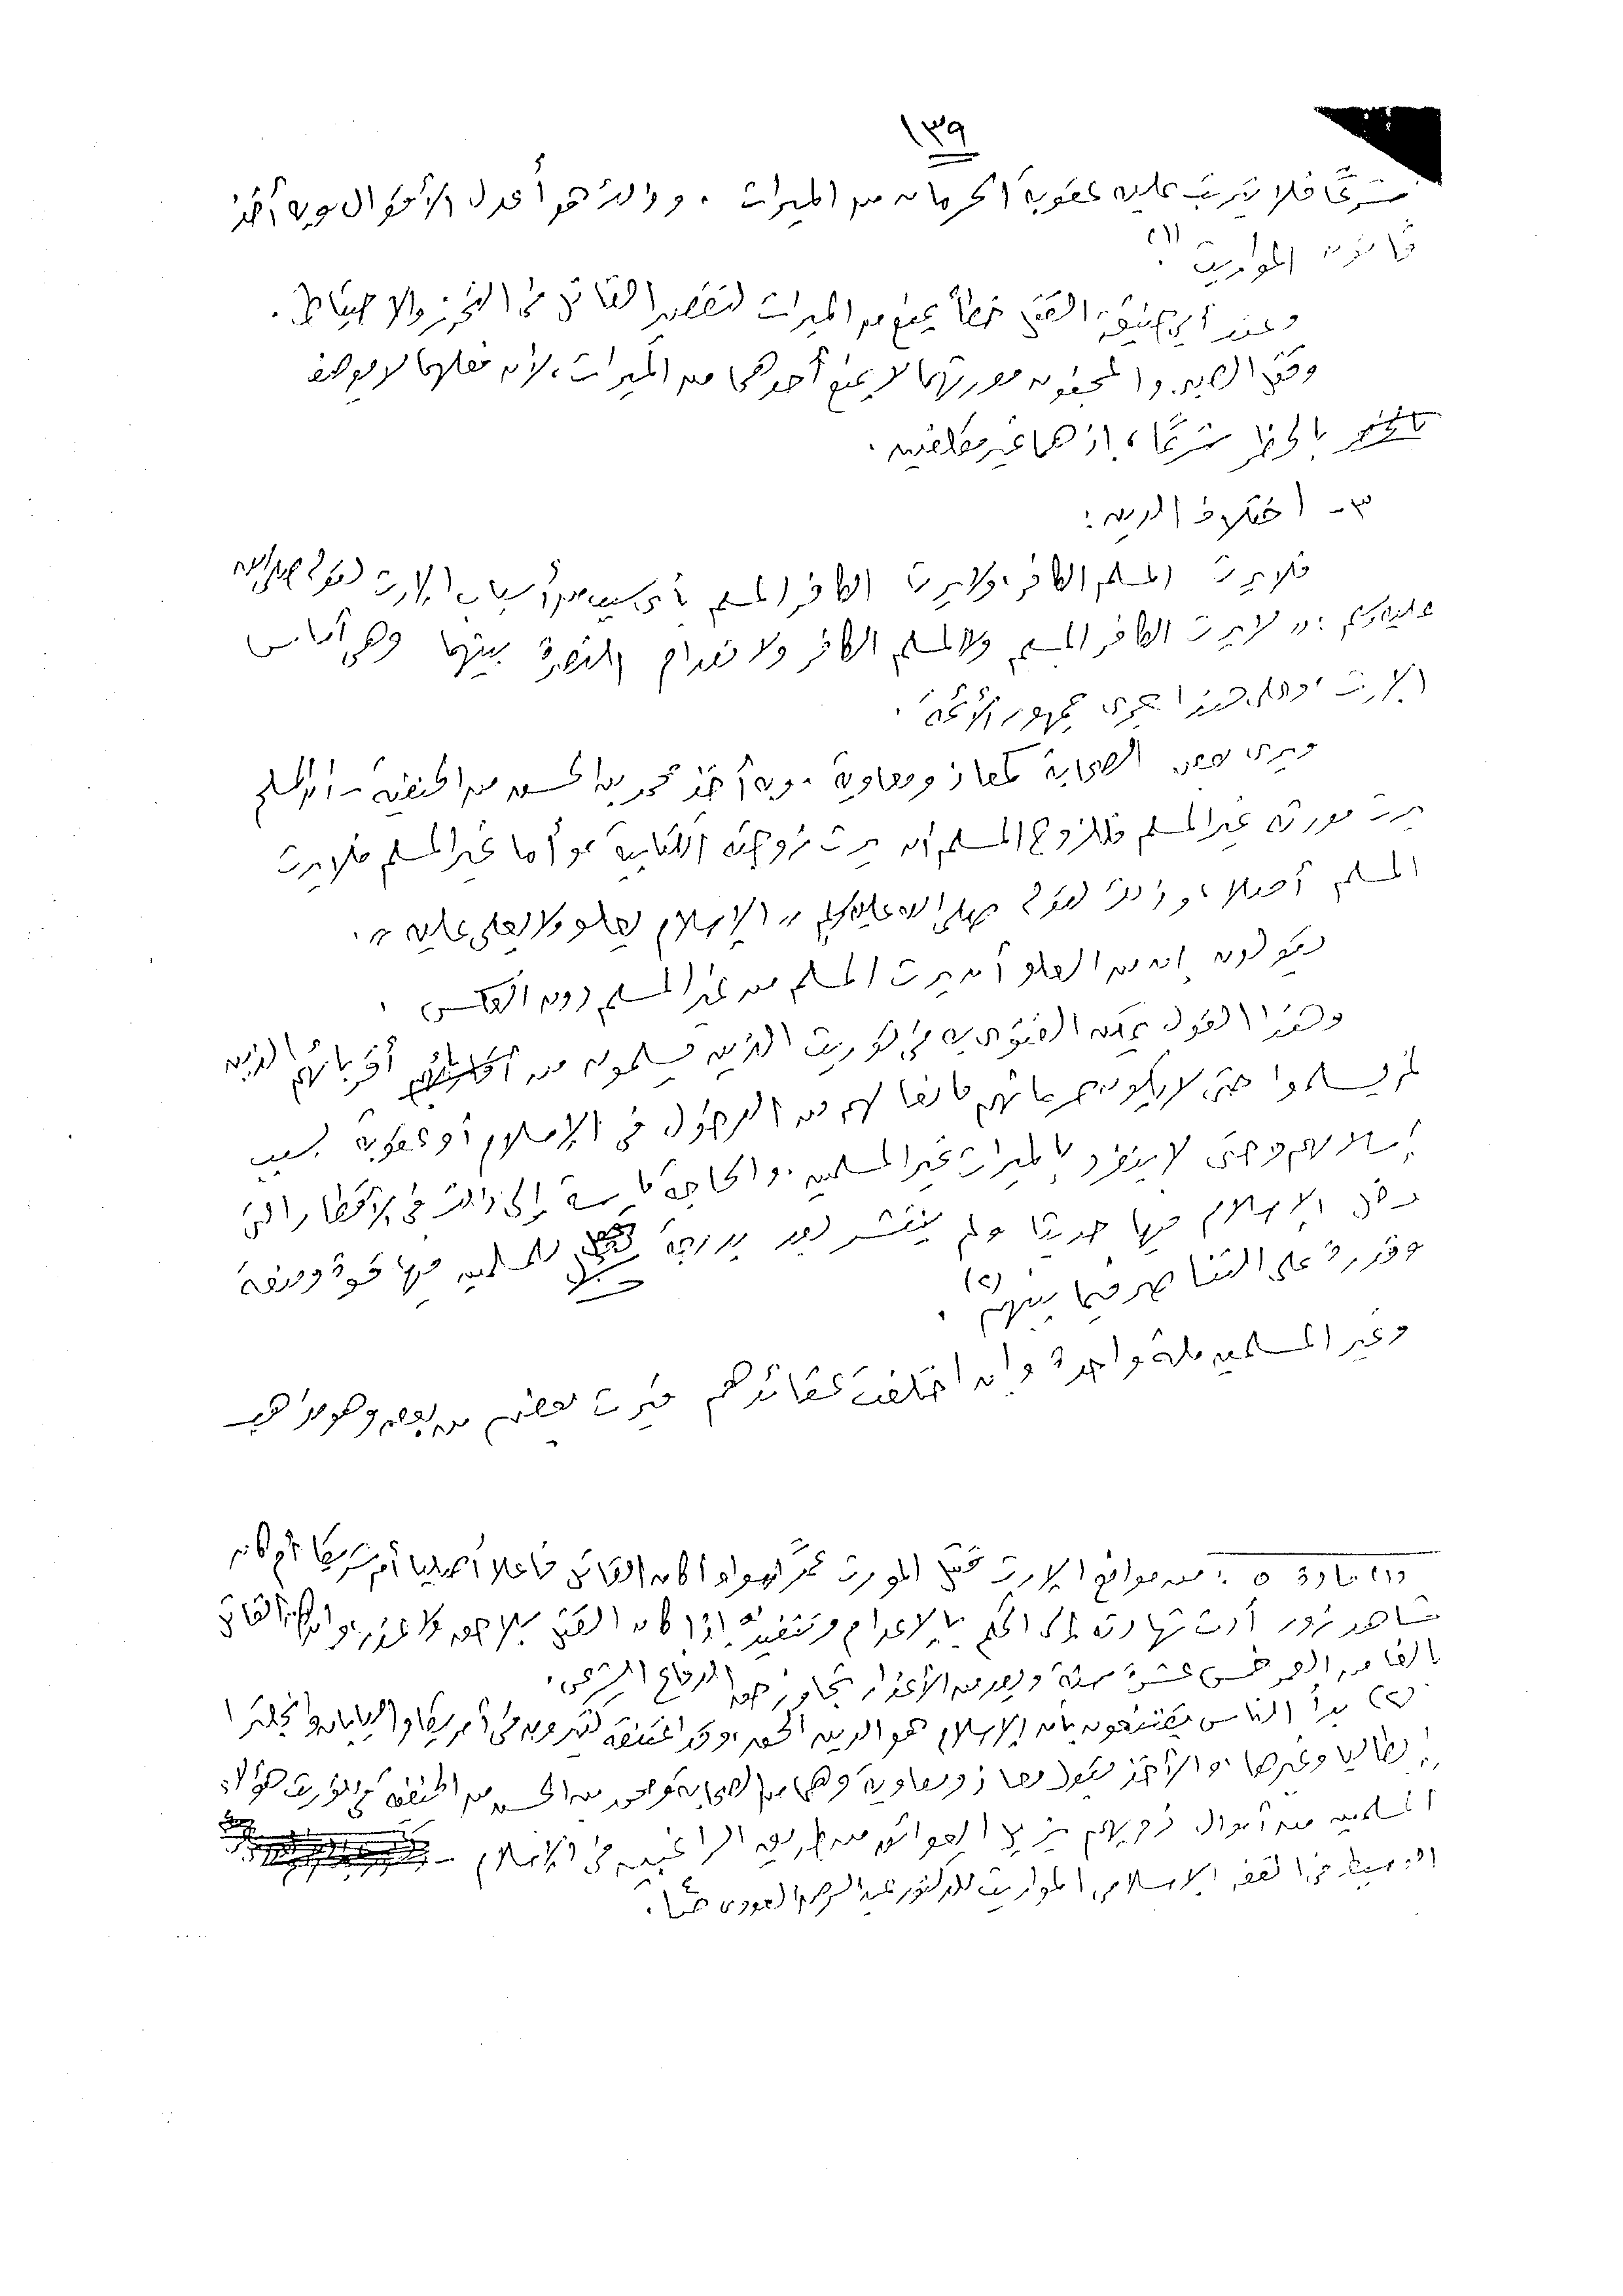 ١٣٩
شرعًا فلا يترتب عليه عقوبة الحرمان من الميراث . وذلك هو أعدل الأقوال وبه أخذ
قانون المواريث (١) .
وعند أبي حنيفة القتل خطأ يمنع من الميراث لتقصير القاتل في التحرز والاحتياط .
وقتل الصبى والمجنون مورثهما لا يمنع أحدهما من الميراث ، لأن فعلهما لا يوصف
بالحظر شرعًا ، إذ هما غير مكلفين .
٣- اختلاف الدين :
فلا يرث المسلم الكافر ، ولا يرث الكافر المسلم بأى سبب من أسباب الإرث لقوله صلى الله
عليه وسلم : " لا يرث الكافر المسلم ولا المسلم الكافر ولانعدام النصرة بينهما وهى أساس
الإرث ، وعلى هذا جرى جمهور الأئمة .
ويرى بعض الصحابة كمعاذ ومعاوية - وبه أخذ محمد بن الحسن من الحنفية - أن المسلم
يرث مورثه غير المسلم فللزوج المسلم أن يرث زوجته الكتابية ، وأما غير المسلم فلا يرث
المسلم أصلا ، وذلك لقوله صلى الله عليه وسلم " الإسلام يعلو ولا يعلى عليه " .
ويقولون إن من العلو أن يرث المسلم من غير المسلم دون العكس .
وهذا القول يمكن الفتوى به في توريث الذين يسلمون من أقربائهم الذين
لم يسلموا حتى لا يكون حرمانهم مانعا لهم من الدخول في الإسلام أو عقوبة بسبب
إسلامهم وحتى لا ينفرد بالميراث غير المسلمين . والحاجة ماسة إلى ذلك في الأقطار التى
دخل الإسلام فيها حديثا ولم ينتشر بعد بدرجة تجعل للمسلمين فيها قوة ومنعة
وقدرة على التناصر فيما بينهم (٢) .
وغير المسلمين ملة واحدة وإن اختلفت عقائدهم فيرث بعضهم من بعض وهو مذاهب
(١) مادة ٥ : من موانع الإرث قتل المورث عمدًا سواء أكان القاتل فاعلا أصليا أم شريكا أم كان
شاهد زور أدت شهادته إلى الحكم بالإعدام وتنفيذه إذا كان القتل بلا حق ولا عذر ، وكان القاتل
بالغا من العمر خمس عشرة سنة ويعد من الأعذار تجاوز حق الدفاع الشرعى .
(٢) بدأ الناس يقتنعون بأن الإسلام هو الدين الحق ، وقد اعتنقه كثيرون في أمريكا واليابان وانجلترا
وإيطاليا وغيرها ، والأخذ بقول معاذ ومعاوية وهما من الصحابة ومحمد بن الحسن من الحنفية في توريث هؤلاء
المسلمين من أموال ذويهم يزيل العوائق من طريق الراغبين في الإسلام -
الوسيط في الفقه الإسلامى المواريث للدكتور عبد الرحمن العدوى